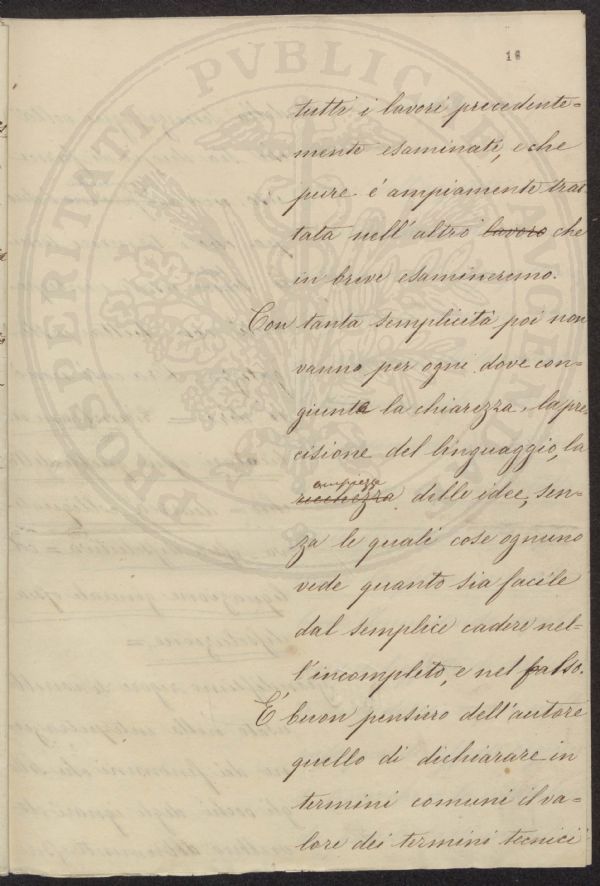 18
PROSPERITATI PVBLICAE
tutti i lavori precedente=
mente esaminati, e che
pure é ampiamente trat
tata nell'altro lavoro che
in breve esamineremo.
Con tanta semplicità poi non
vanno per ogni dove con-
giunte la chiarezza, la pre
cisione del linguaggio, la
ampiezza
ricchezza delle idee, sen-
za le quali cose ognuno
vede quanto sia facile
dal semplice cadere nel-
l'incompleto, e nel falso.
E' buon pensiero dell'autore
quello di dichiarare in
termini comuni il va-
lore dei termini tecnici